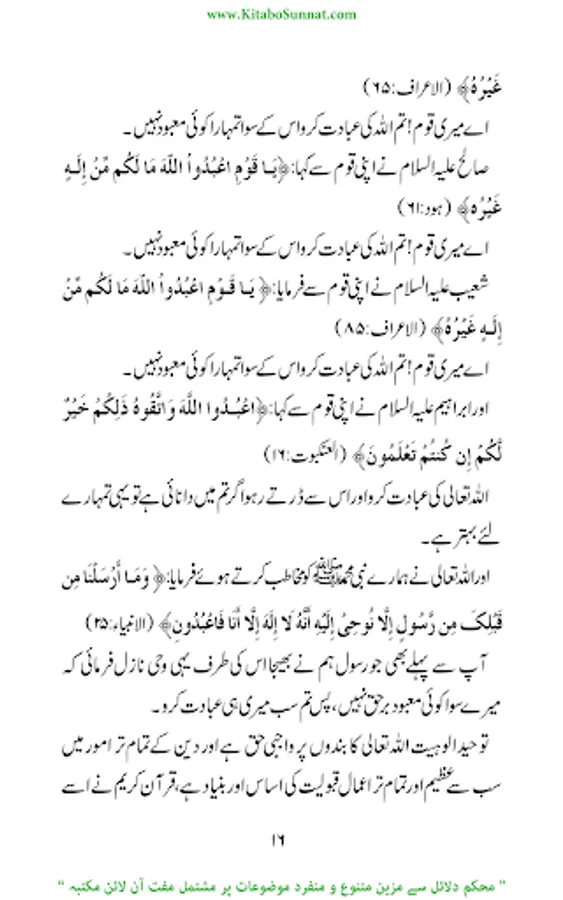 www.KitaboSunnat.com
غَيْرُهُ﴾ (الاعراف:۶۵)
اے میری قوم! تم اللہ کی عبادت کرو اس کے سوا تمہارا کوئی معبود نہیں۔
صالح علیہ السلام نے اپنی قوم سے کہا: ﴿يَا قَوْمِ اعْبُدُواْ اللّهَ مَا لَكُم مِّنْ إِلَـهٍ
غَيْرُهُ﴾ (ہود:۶۱)
اے میری قوم! تم اللہ کی عبادت کرو اس کے سوا تمہارا کوئی معبود نہیں۔
شعیب علیہ السلام نے اپنی قوم سے فرمایا: ﴿يَا قَوْمِ اعْبُدُواْ اللّهَ مَا لَكُم مِّنْ
إِلَـهٍ غَيْرُهُ﴾ (الاعراف:۸۵)
اے میری قوم! تم اللہ کی عبادت کرو اس کے سوا تمہارا کوئی معبود نہیں۔
اور ابراہیم علیہ السلام نے اپنی قوم سے کہا: ﴿اعْبُدُوا اللَّهَ وَاتَّقُوهُ ذَلِكُمْ خَيْرٌ
لَّكُمْ إِن كُنتُمْ تَعْلَمُونَ﴾ (العنکبوت:۱۶)
اللہ تعالی کی عبادت کرو اور اس سے ڈرتے رہو اگر تم میں دانائی ہے تو یہی تمہارے
لئے بہتر ہے۔
اور اللہ تعالی نے ہمارے نبی محمد ﷺ کو مخاطب کرتے ہوئے فرمایا: ﴿وَمَا أَرْسَلْنَا مِن
قَبْلِكَ مِن رَّسُولٍ إِلَّا نُوحِيْ إِلَيْهِ أَنَّهُ لَا إِلَهَ إِلَّا أَنَا فَاعْبُدُونِ﴾ (الانبیاء:۲۵)
آپ سے پہلے بھی جو رسول ہم نے بھیجا اس کی طرف یہی وحی نازل فرمائی کہ
میرے سوا کوئی معبود برحق نہیں، پس تم سب میری ہی عبادت کرو۔
توحید الوہیت اللہ تعالی کا بندوں پر واجبی حق ہے اور دین کے تمام تر امور میں
سب سے عظیم اور تمام تر اعمال قبولیت کی اساس اور بنیاد ہے، قرآن کریم نے اسے
۱۶
" محکم دلائل سے مزین متنوع و منفرد موضوعات پر مشتمل مفت آن لائن مکتبہ "